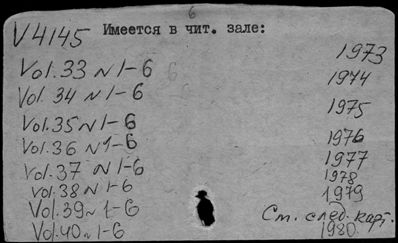 6
V 4145 Имеется в чит. зале:
Vol. 33 N 1-6 1973
Vol. 34 N 1-6 1974
Vol. 35 N 1-6 1975
Vol. 36 N 1-6 1976
Vol. 37 N 1-6 1977
Vol. 38 N 1-6 1978
Vol. 39 N 1-6 1979
Vol. 40 N 1-6 1980
См. след. карт.